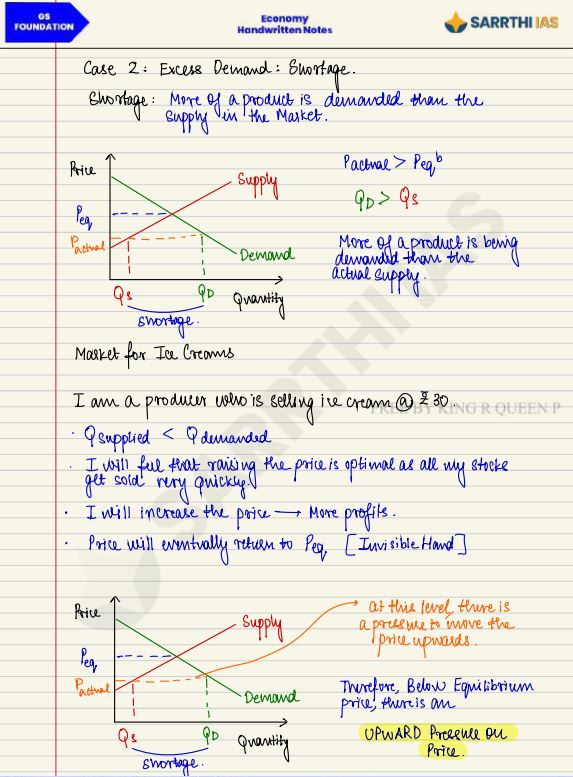 GS
FOUNDATION
Economy
Handwritten Notes
SARRTHI IAS
Case 2: Excess Demand: Shortage.
Shortage: More of a product is demanded than the
Supply in the Market.
Price
Supply
Peq
Pactual
Demand
Qs
QD
Quantity
Shortage.
Pactual > Peqb
QD > QS
More of a product is being
demanded than the
actual supply.
Market for Ice Creams
I am a producer who is selling ice cream @ ₹30.
BY KING R QUEEN P
• Qsupplied < Qdemanded
• I will feel that raising the price is optimal as all my stocks
get sold very quickly.
• I will increase the price → More profits.
• Price will eventually return to Peq [Invisible Hand]
Price
Supply
Peq
Pactual
Demand
Qs
QD
Quantity
Shortage.
At this level, there is
a pressure to move the
Price upwards.
Therefore, Below Equilibrium
price, there is an
UPWARD Pressure on
Price.
SARRTHI IAS